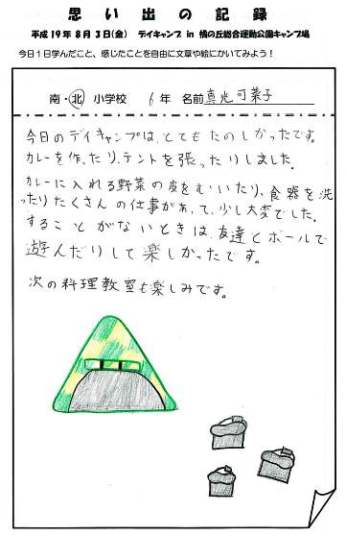 思い出の記録
平成19年8月3日(金) デイキャンプ in 橘の丘総合運動公園キャンプ場
今日1日学んだこと、感じたことを自由に文章や絵にかいてみよう!
南・北 小学校 6年 名前
今日のデイキャンプは、とてもたのしかったです。
カレーを作ったり、テントを張ったりしました。
カレーに入れる野菜の皮をむいたり、食器を洗
ったりたくさんの仕事があって、少し大変でした。
することがないときは、友達とボールで
遊んだりして楽しかったです。
次の料理教室も楽しみです。